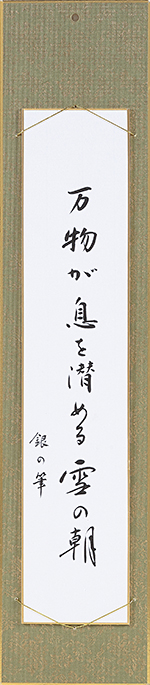 万物が息を潜める雪の朝
銀の筆